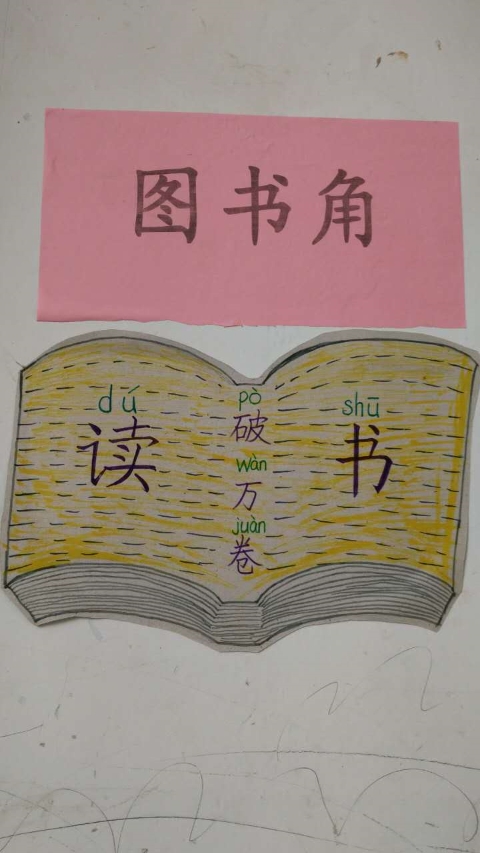 图书角
dú shū
读书
pò
破
wàn
万
juàn
卷